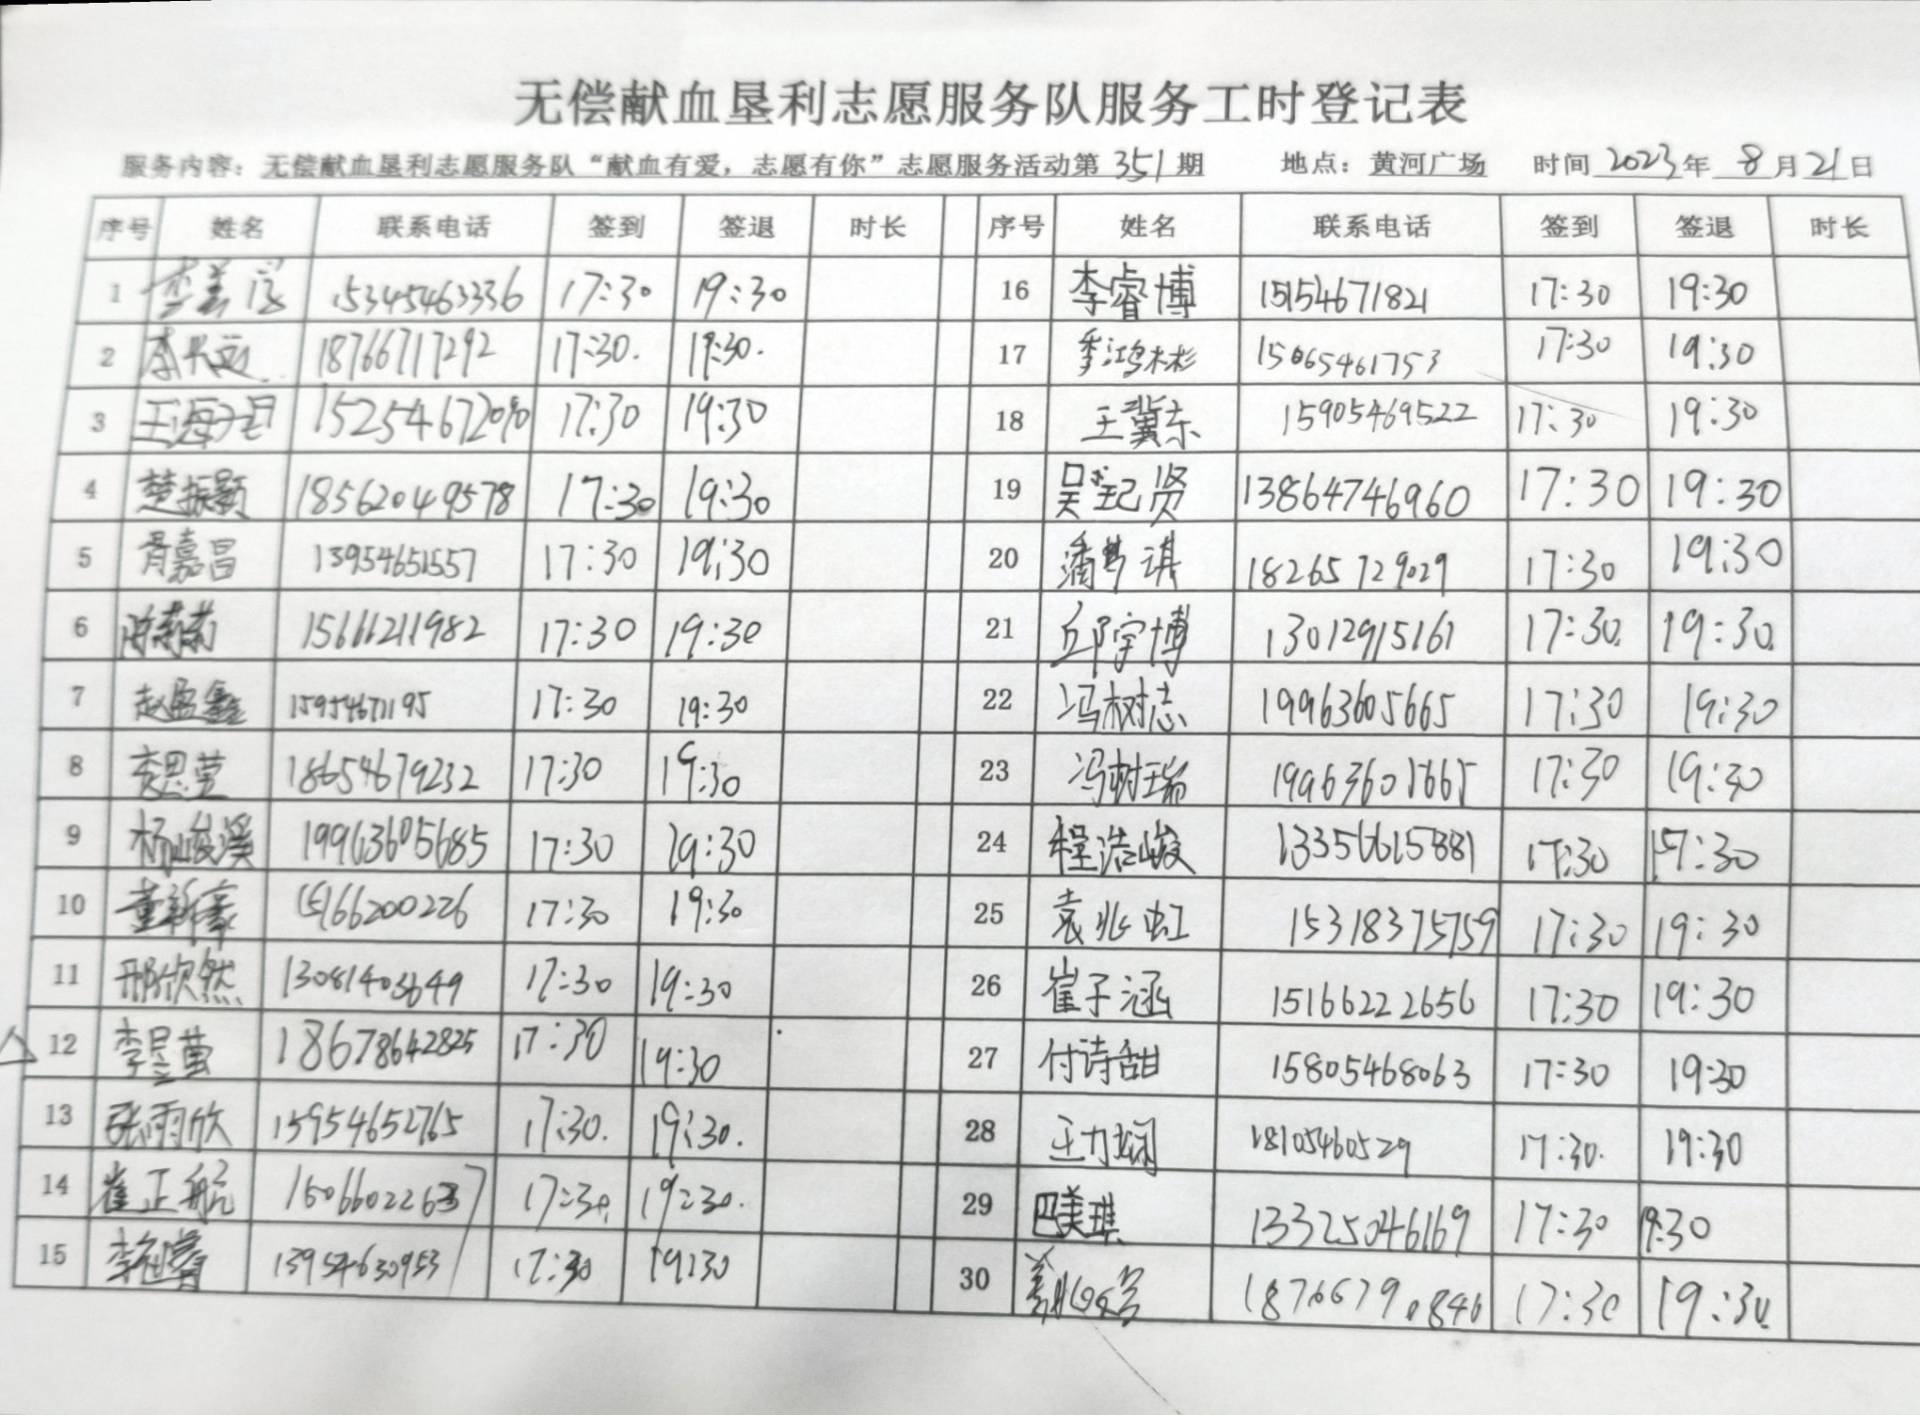 无偿献血垦利志愿服务队服务工时登记表
服务内容：无偿献血垦利志愿服务队“献血有爱，志愿有你”志愿服务活动第 351 期 地点：黄河广场 时间 2023 年 8 月 21 日
序号 姓名 联系电话 签到 签退 时长 序号 姓名 联系电话 签到 签退 时长
1 15345463336 17:30 19:30 16 李睿博 15154671821 17:30 19:30
2 18766717292 17:30. 19:30. 17 季鸿彬 15065461753 17:30 19:30
3 王海 17:30 19:30 18 王冀东 15905469522 17:30 19:30
4 楚振颢 18562049578 17:30 19:30 19 吴 贤 13864746960 17:30 19:30
5 胥嘉昌 13954651557 17:30 19:30 20 潘梦琪 18265729029 17:30 19:30
6 15661211982 17:30 19:30 21 邱宇博 13012915161 17:30. 19:30.
7 赵盈鑫 15954671195 17:30 19:30 22 冯树志 19963605665 17:30 19:30
8 李思莹 18654679232 17:30 19:30 23 冯树瑞 19963605665 17:30 19:30
9 杨峻溪 19963605685 17:30 19:30 24 程浩峻 13356615881 17:30 :30
10 董新豪 15166200226 17:30 19:30 25 袁兆虹 15318375759 17:30 19:30
11 邢欣然 17:30 19:30 26 崔子涵 15166222656 17:30 19:30
12 李昱萤 18678642825 17:30 19:30 27 付诗甜 15805468063 17:30 19:30
13 张雨欣 15954652765 17:30. 19:30. 28 王力娴 18105460529 17:30. 19:30
14 崔正航 17:30. 19:30. 29 巴美琪 13325046169 17:30 19:30
15 13954630953 17:30 19:30 30 17:30 19:30